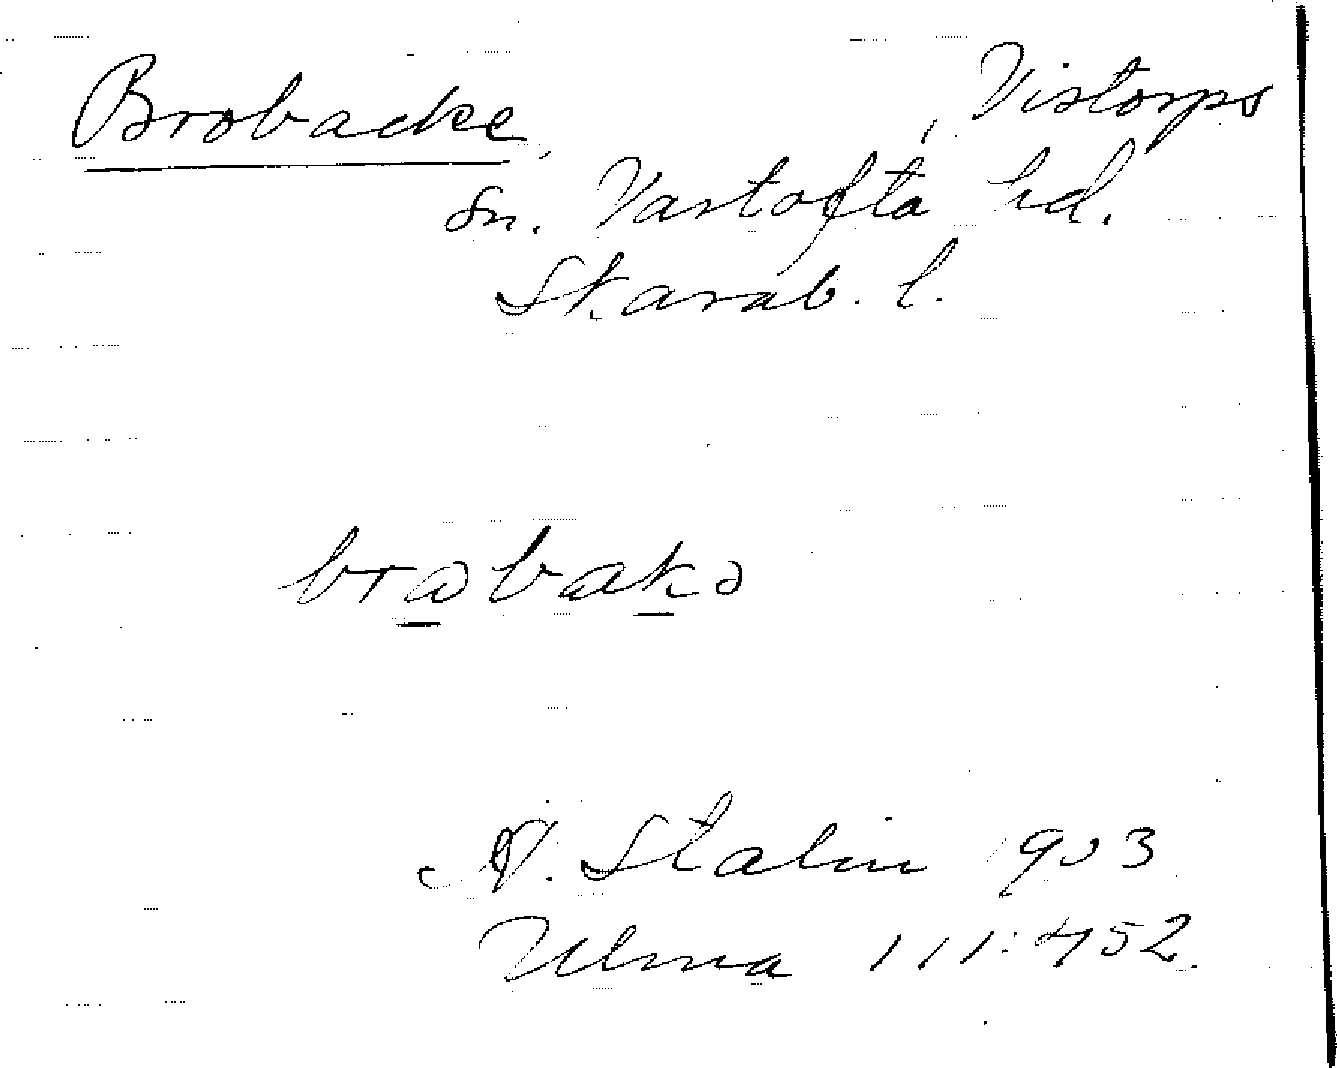 Brobacke, Vistorps
sn. Vartofta hd.
Skarab. l.
brabakə
N. Stalin 1903
Ulma 111:452.